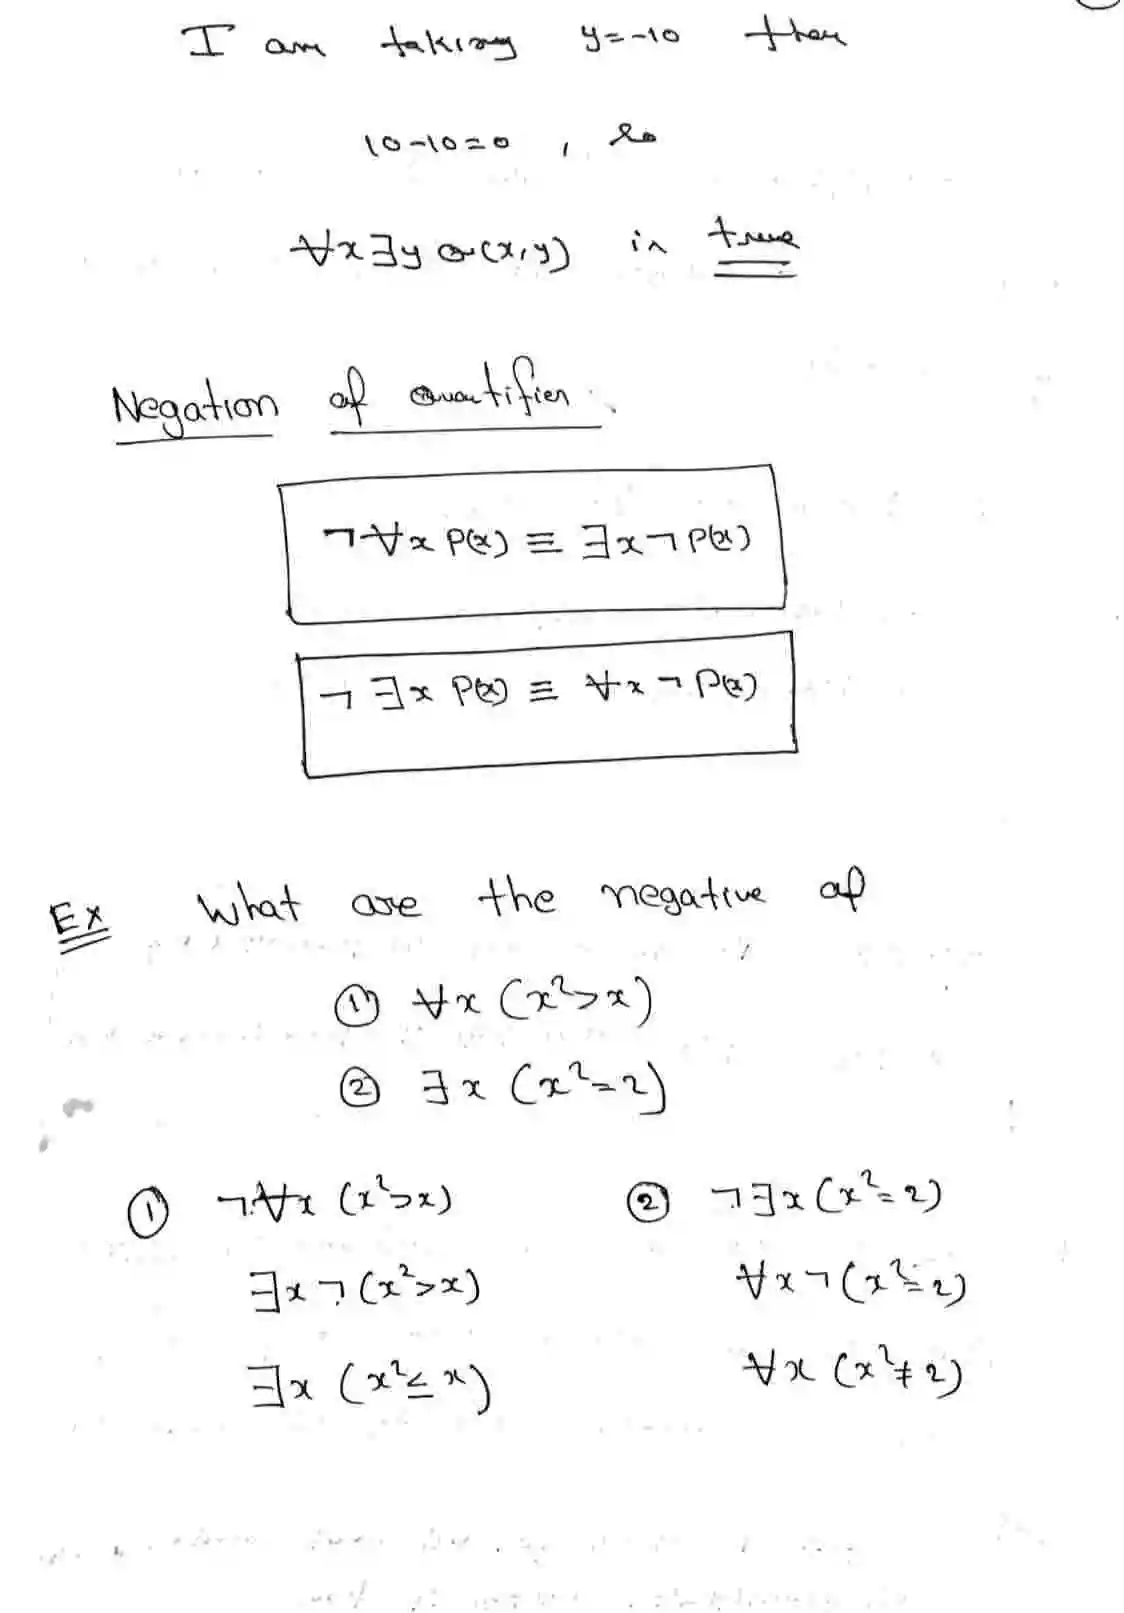 I am taking y=-10 then
10-10=0 , so
∀x∃y Q(x,y) is true
Negation of Quantifier.
¬∀x P(x) ≡ ∃x¬P(x)
¬∃x P(x) ≡ ∀x¬P(x)
Ex What are the negative of
① ∀x (x²>x)
② ∃x (x²=2)
① ¬∀x (x²>x) ② ¬∃x (x²=2)
∃x¬(x²>x) ∀x¬(x²=2)
∃x (x²≤x) ∀x (x²≠2)